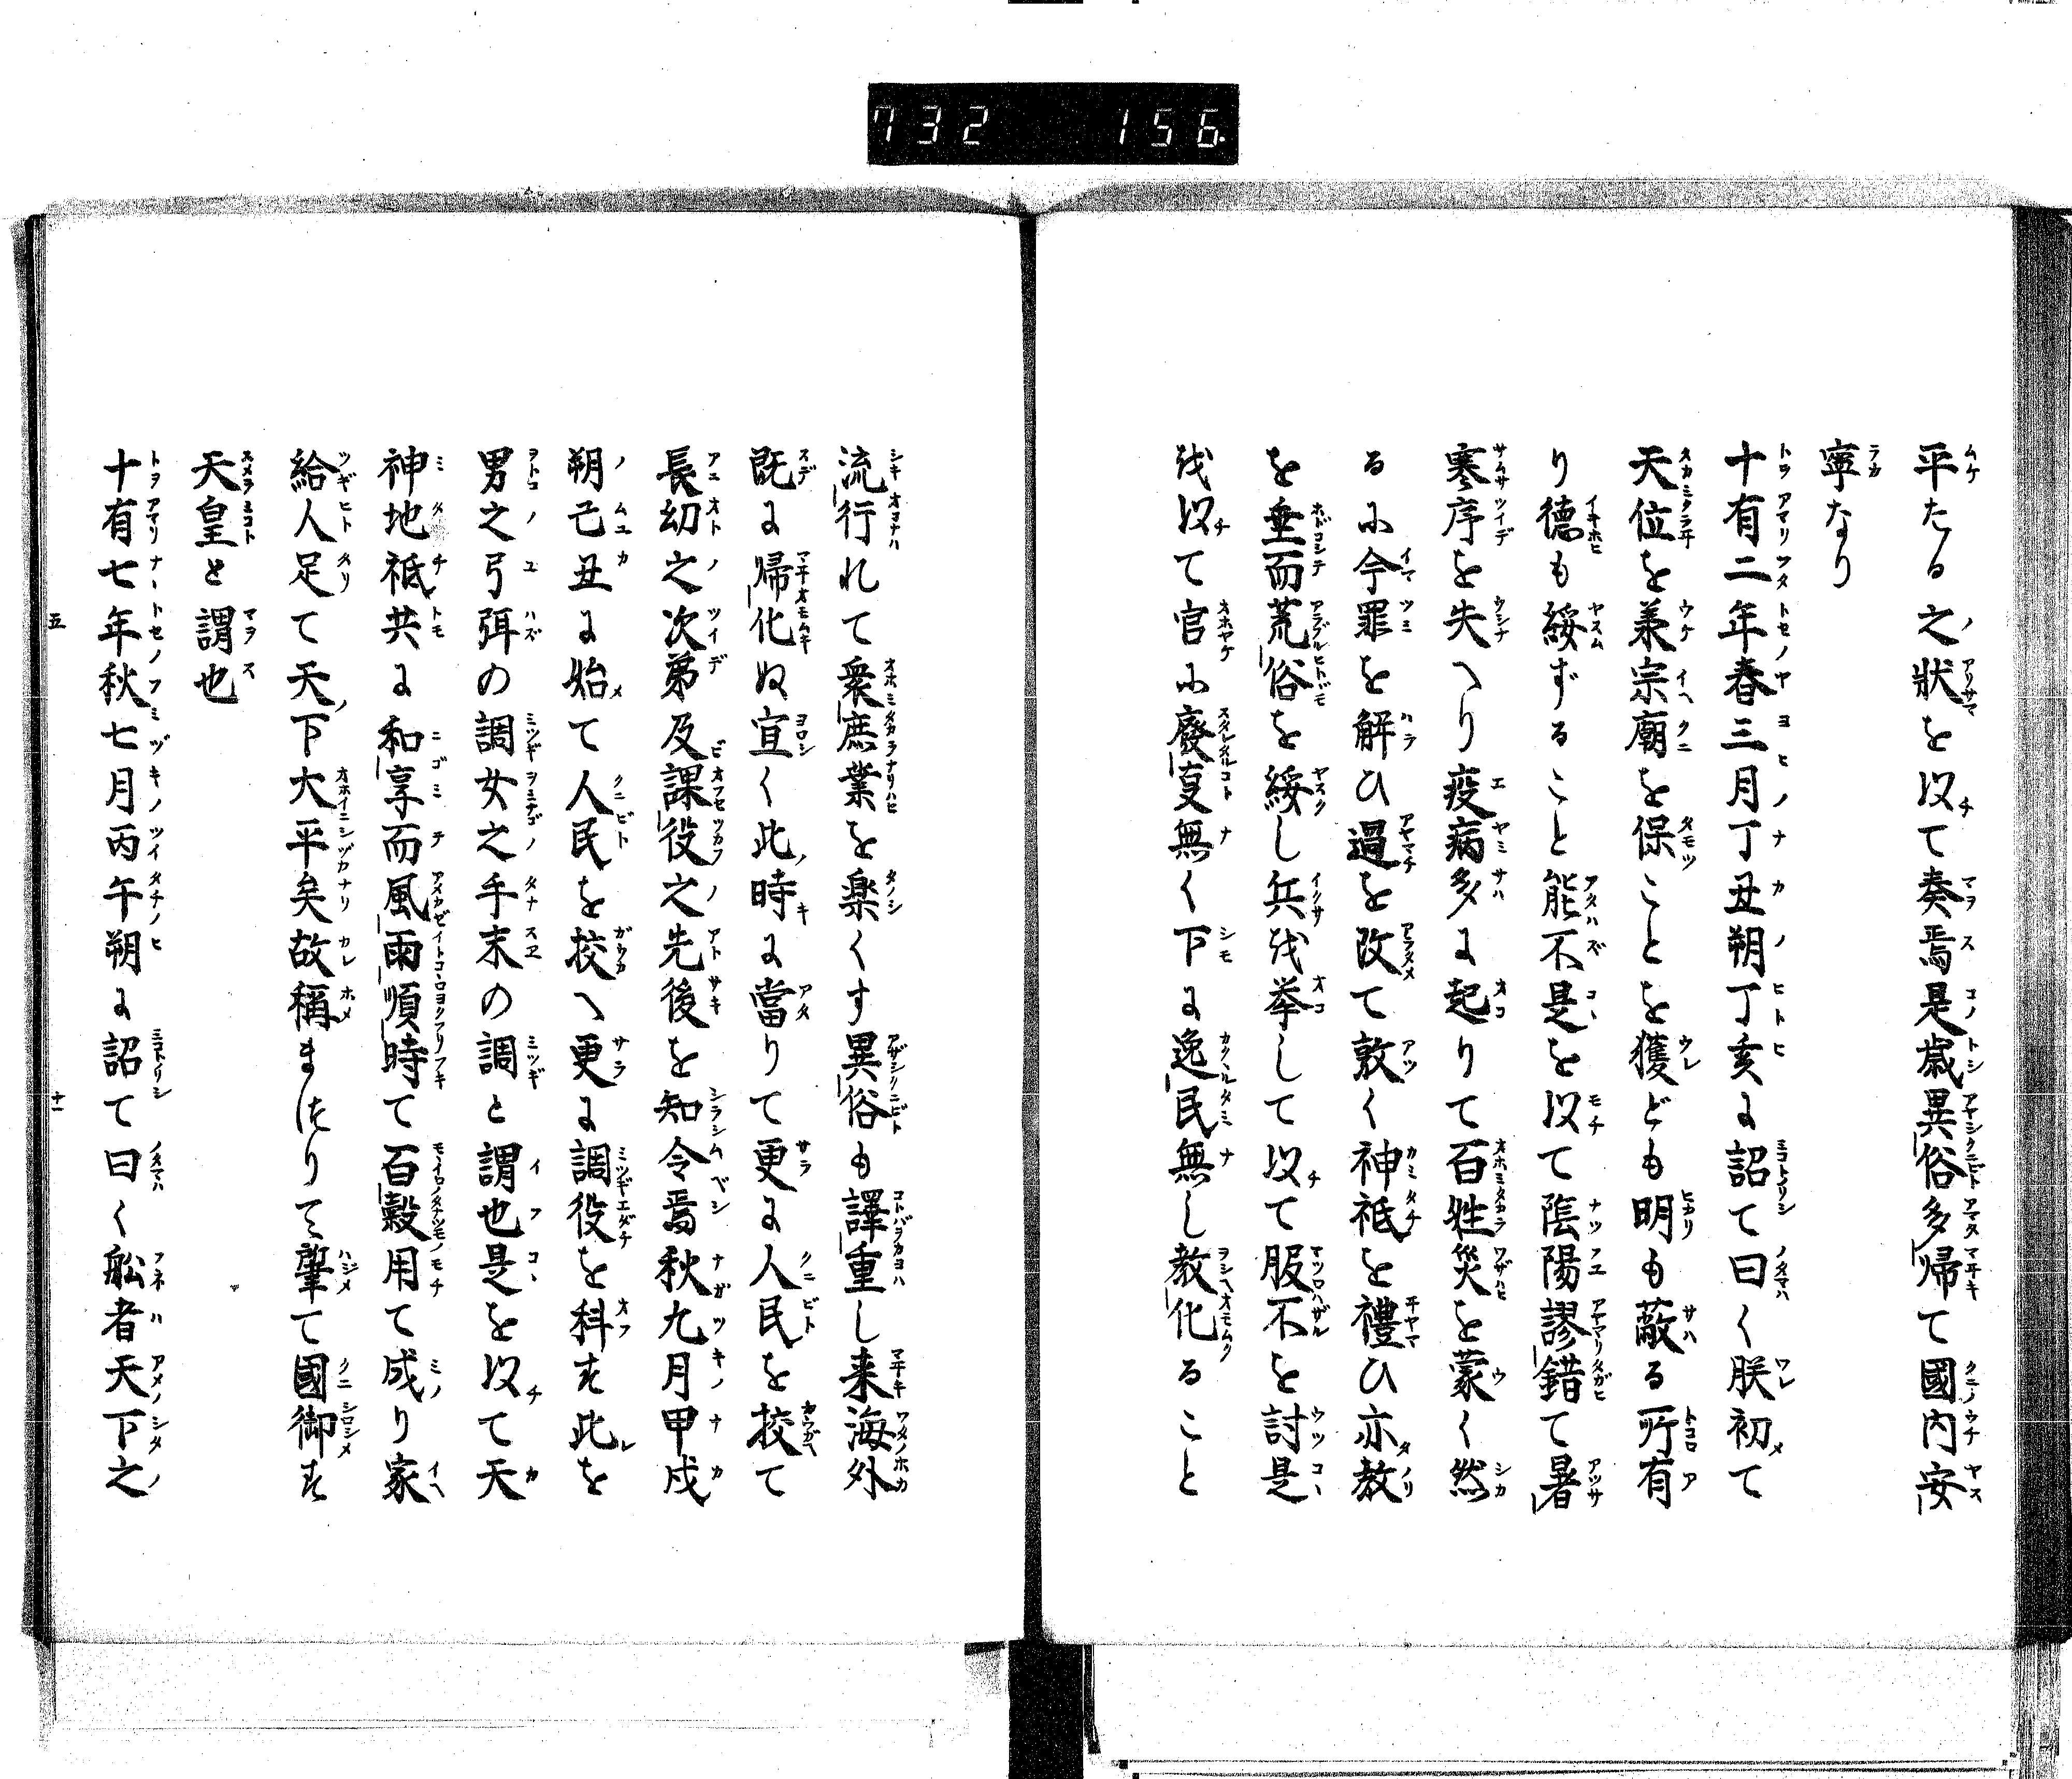 732 156
平たる之狀を以て奏焉是歳異俗多帰て國内安
寧なり
十有二年春三月丁丑朔丁亥に詔て曰く朕初て
天位を兼宗廟を保ことを獲ども明も蔽る所有
り德も綏ずること能不是を以て陰陽謬錯て暑
寒序を失へり疫病多に起りて百姓災を蒙く然
るに今罪を解ひ過を改て敦く神祇を禮ひ亦教
を垂而荒俗を綏し兵を挙して以て服不を討是
を以て官に廢事無く下に逸民無し教化ること
流行れて衆庶業を楽くす異俗も譯重し来海外
既に帰化ぬ宜く此時に當りて更に人民を挍て
長幼之次弟及課役之先後を知令焉秋九月甲戌
朔己丑に始て人民を挍へ更に調役を科す此を
男之弓弭の調女之手末の調と謂也是を以て天
神地祇共に和享而風雨順時て百穀用て成り家
給人足て天下大平矣故稱まほりて肇て國御す
天皇と謂也
十有七年秋七月丙午朔に詔て曰く舩者天下之
五 十一